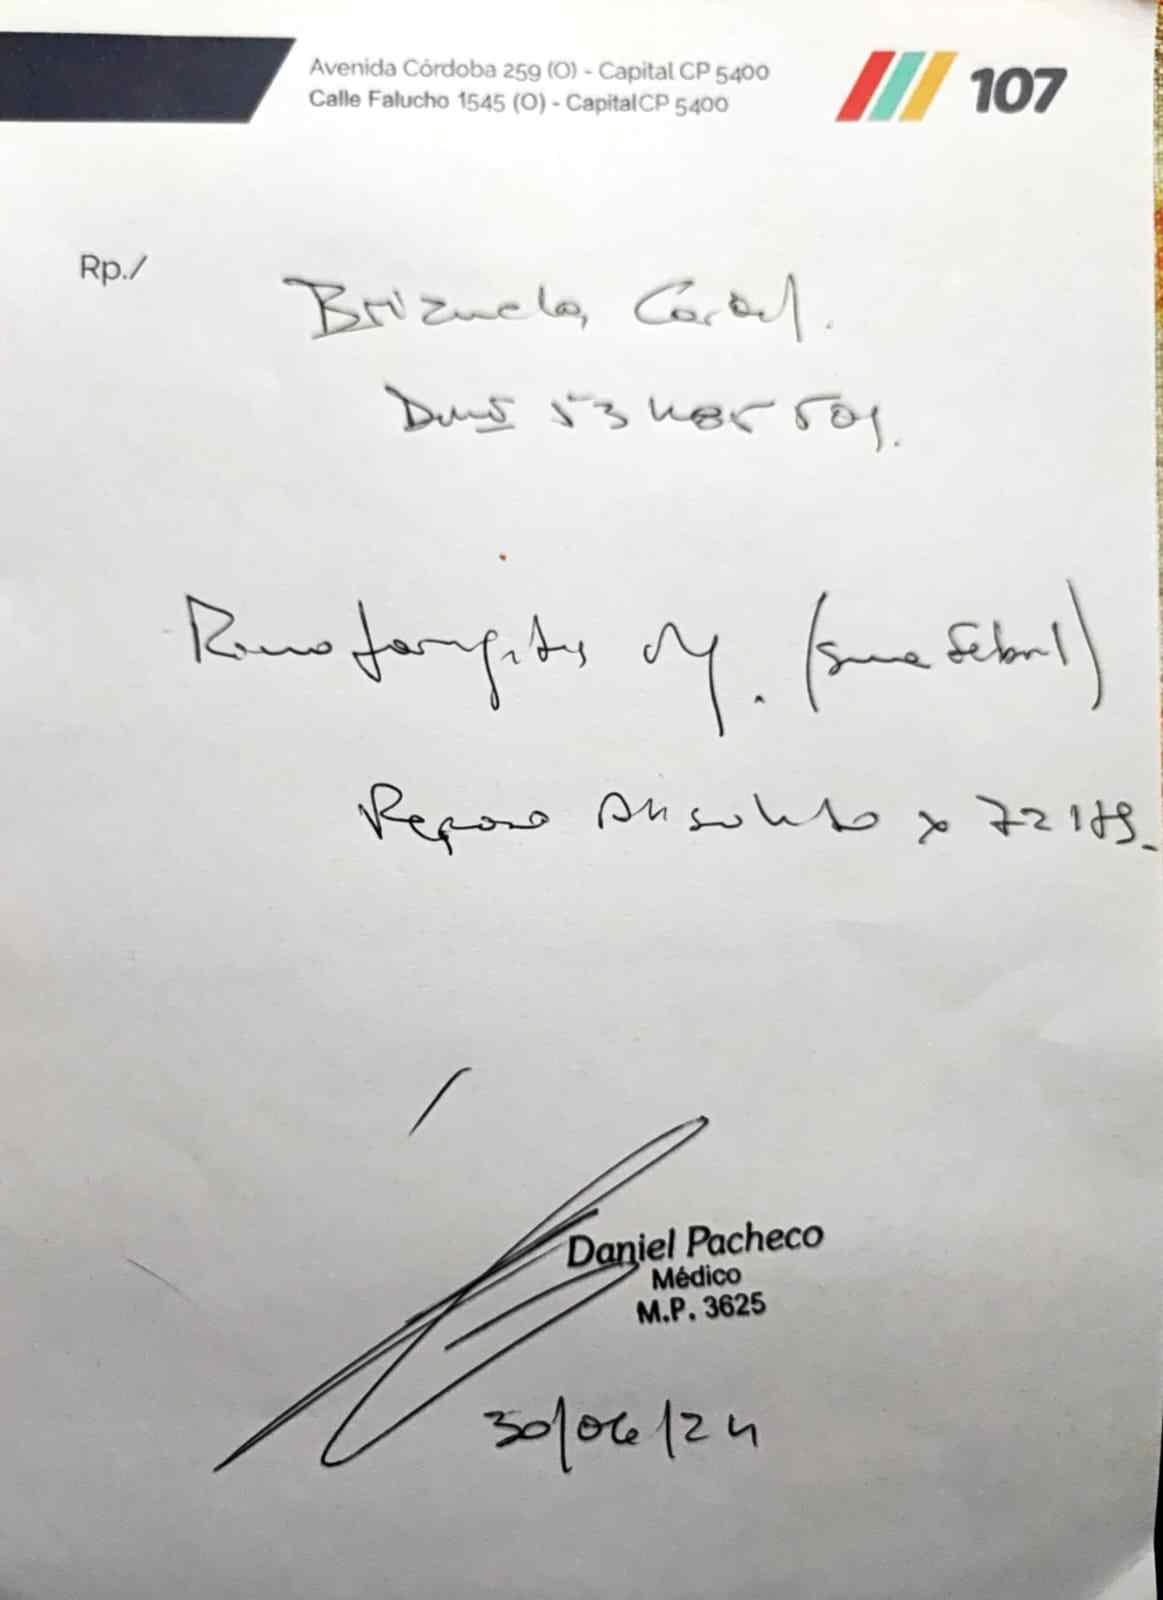 Avenida Córdoba 259 (O) - Capital CP 5400
Calle Falucho 1545 (O) - Capital CP 5400
107
Rp./
Brizuela,
53 485 501.
Rinofaringitis (Sme Febril)
Reposo Absoluto x 72 HS.
Daniel Pacheco
Médico
M.P. 3625
30/06/24